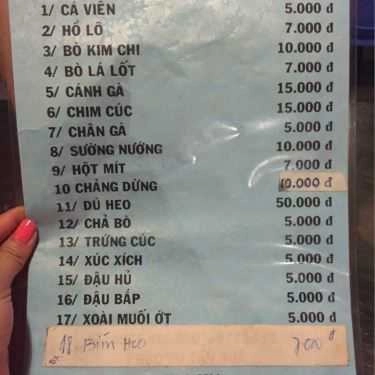 1/ CÁ VIÊN 5.000 đ
2/ HỒ LÔ 7.000 đ
3/ BÒ KIM CHI 10.000 đ
4/ BÒ LÁ LỐT 7.000 đ
5/ CÁNH GÀ 15.000 đ
6/ CHIM CÚC 15.000 đ
7/ CHÂN GÀ 5.000 đ
8/ SƯỜNG NƯỚNG 10.000 đ
9/ HỘT MÍT 7.000 đ
10 CHẢNG DỪNG 10.000 đ
11/ DÚ HEO 50.000 đ
12/ CHẢ BÒ 5.000 đ
13/ TRỨNG CÚC 5.000 đ
14/ XÚC XÍCH 5.000 đ
15/ ĐẬU HỦ 5.000 đ
16/ ĐẬU BẮP 5.000 đ
17/ XOÀI MUỐI ỚT 5.000 đ
18. Bím Heo đ